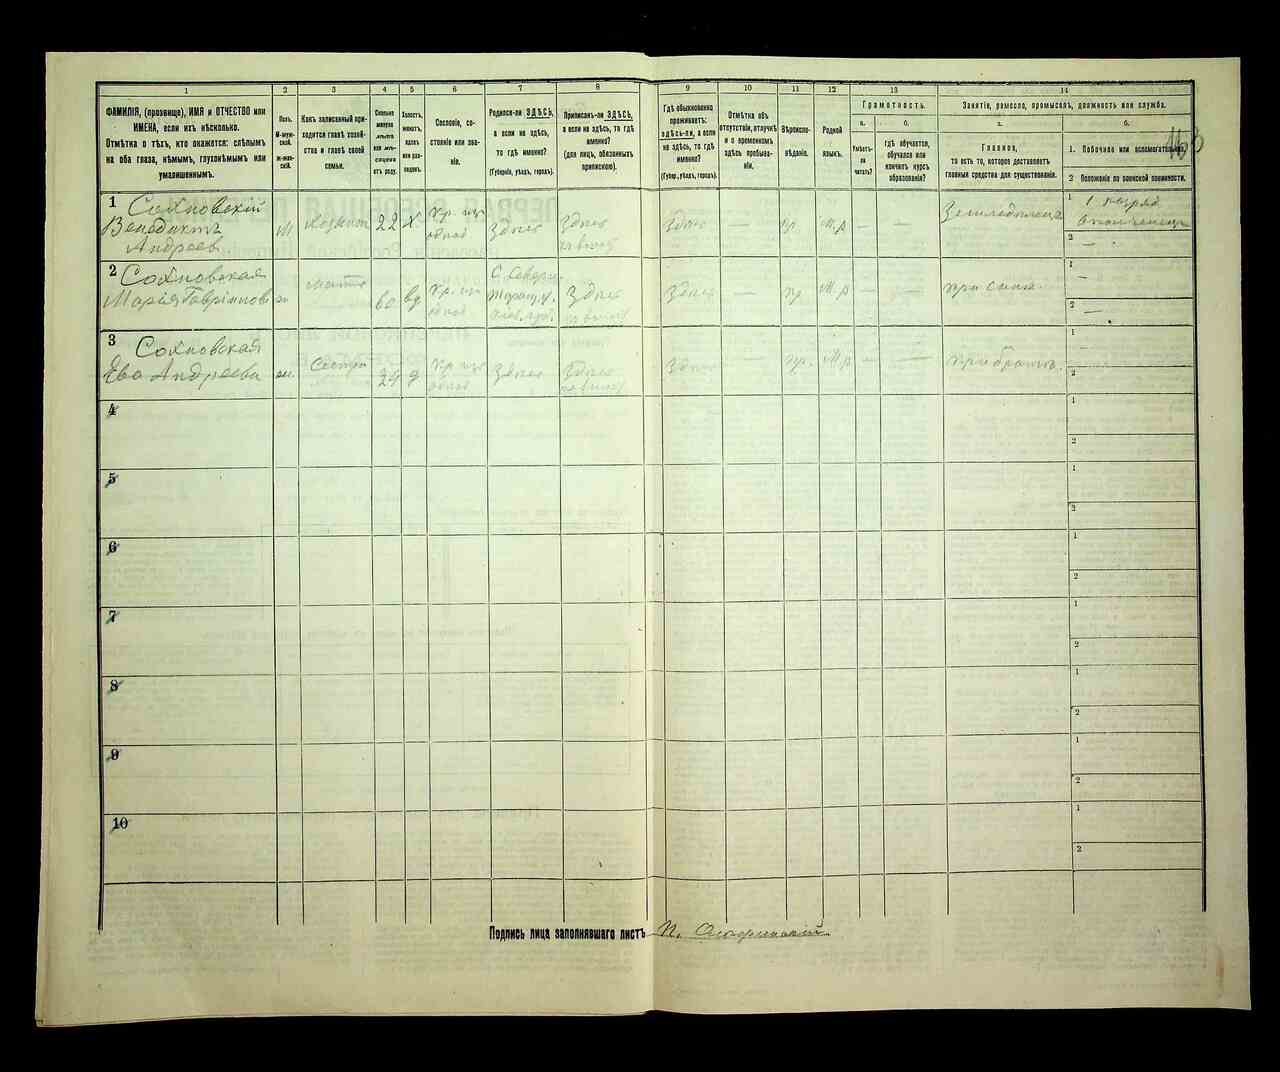 1 2 3 4 5 6 7 8 9 10 11 12 13 14
ФАМИЛІЯ, (прозвище), ИМЯ и ОТЧЕСТВО или
ИМЕНА, если ихъ нѣсколько.
Отмѣтка о тѣхъ, кто окажется: слѣпымъ
на оба глаза, нѣмымъ, глухонѣмымъ или
умалишеннымъ.
Полъ.
М-муж-
ской.
ж-жен-
скій.
Какъ записанный при-
ходится главѣ хозяй-
ства и главѣ своей
семьи.
Сколько
минуло
лѣтъ
или мѣ-
сяцевъ
отъ роду.
Холостъ,
женатъ,
вдовъ
или раз-
веденъ.
Сословіе, со-
стояніе или зва-
ніе.
Родился-ли ЗДѢСЬ,
а если не здѣсь,
то гдѣ именно?
(Губернія, уѣздъ, городъ).
Приписанъ-ли ЗДѢСЬ,
а если не здѣсь, то гдѣ
именно?
(для лицъ, обязанныхъ
припискою).
Гдѣ обыкновенно
проживаетъ:
здѣсь-ли, а если
не здѣсь, то гдѣ
именно?
(Губер., уѣздъ, городъ).
Отмѣтка объ
отсутствіи, отлучкѣ
и о временномъ
здѣсь пребыва-
ніи.
Вѣроиспо-
вѣданіе.
Родной
языкъ.
Грамотность.
а.
Умѣетъ-
ли
читать?
б.
гдѣ обучается,
обучался или
кончилъ курсъ
образованія?
Занятіе, ремесло, промыселъ, должность или служба.
а.
Главное,
то есть то, которое доставляетъ
главныя средства для существованія.
б.
1. Побочное или вспомогательное.
2 Положеніе по воинской повинности.
1 Сохновскій
Венедиктъ
Андреев
М
Хозяин
22
Х
Кр. из
Здѣсь
Здѣсь
Здѣсь
—
пр.
М.р
—
—
Земледѣлец
1 1 разряд
ополченец
2 —
2 Сохновская
Марія
ж
мать
60
вд
Кр. из
Здѣсь
Здѣсь
—
пр
М.р
—
—
при сынѣ.
1 —
2 —
3 Сохновская
Ева Андреева
ж.
Сестра
д
Кр из
Здѣсь
Здѣсь
Здѣсь
—
пр.
М.р
—
—
при братѣ.
1 —
2
4
1
2
5
1
2
6
1
2
7
1
2
8
1
2
9
1
2
10
1
2
Подпись лица заполнявшаго листъ